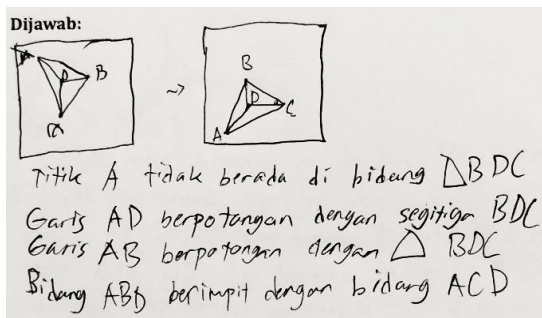 Dijawab:
A B
D B
C A D C
Titik A tidak berada di bidang △BDC
Garis AD berpotongan dengan segitiga BDC
Garis AB berpotongan dengan △ BDC
Bidang ABD berimpit dengan bidang ACD